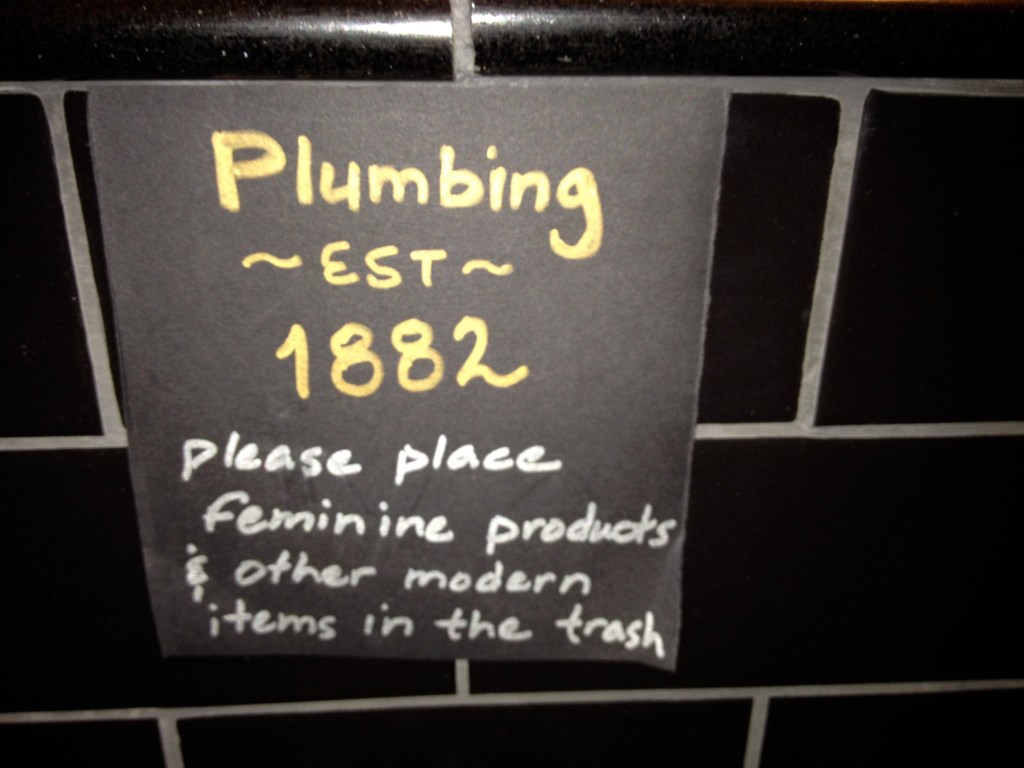 Plumbing
~ EST ~
1882
please place
feminine products
& other modern
items in the trash